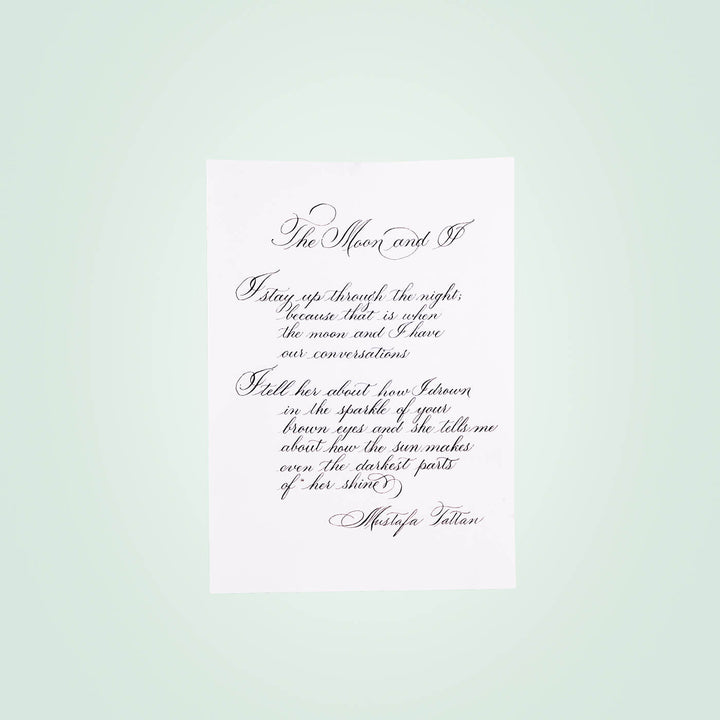 The Moon and I
I stay up through the night;
because that is when
the moon and I have
our conversations
I tell her about how I drown
in the sparkle of your
brown eyes and she tells me
about how the sun makes
even the darkest parts
of " her shine
Mustafa Tattan